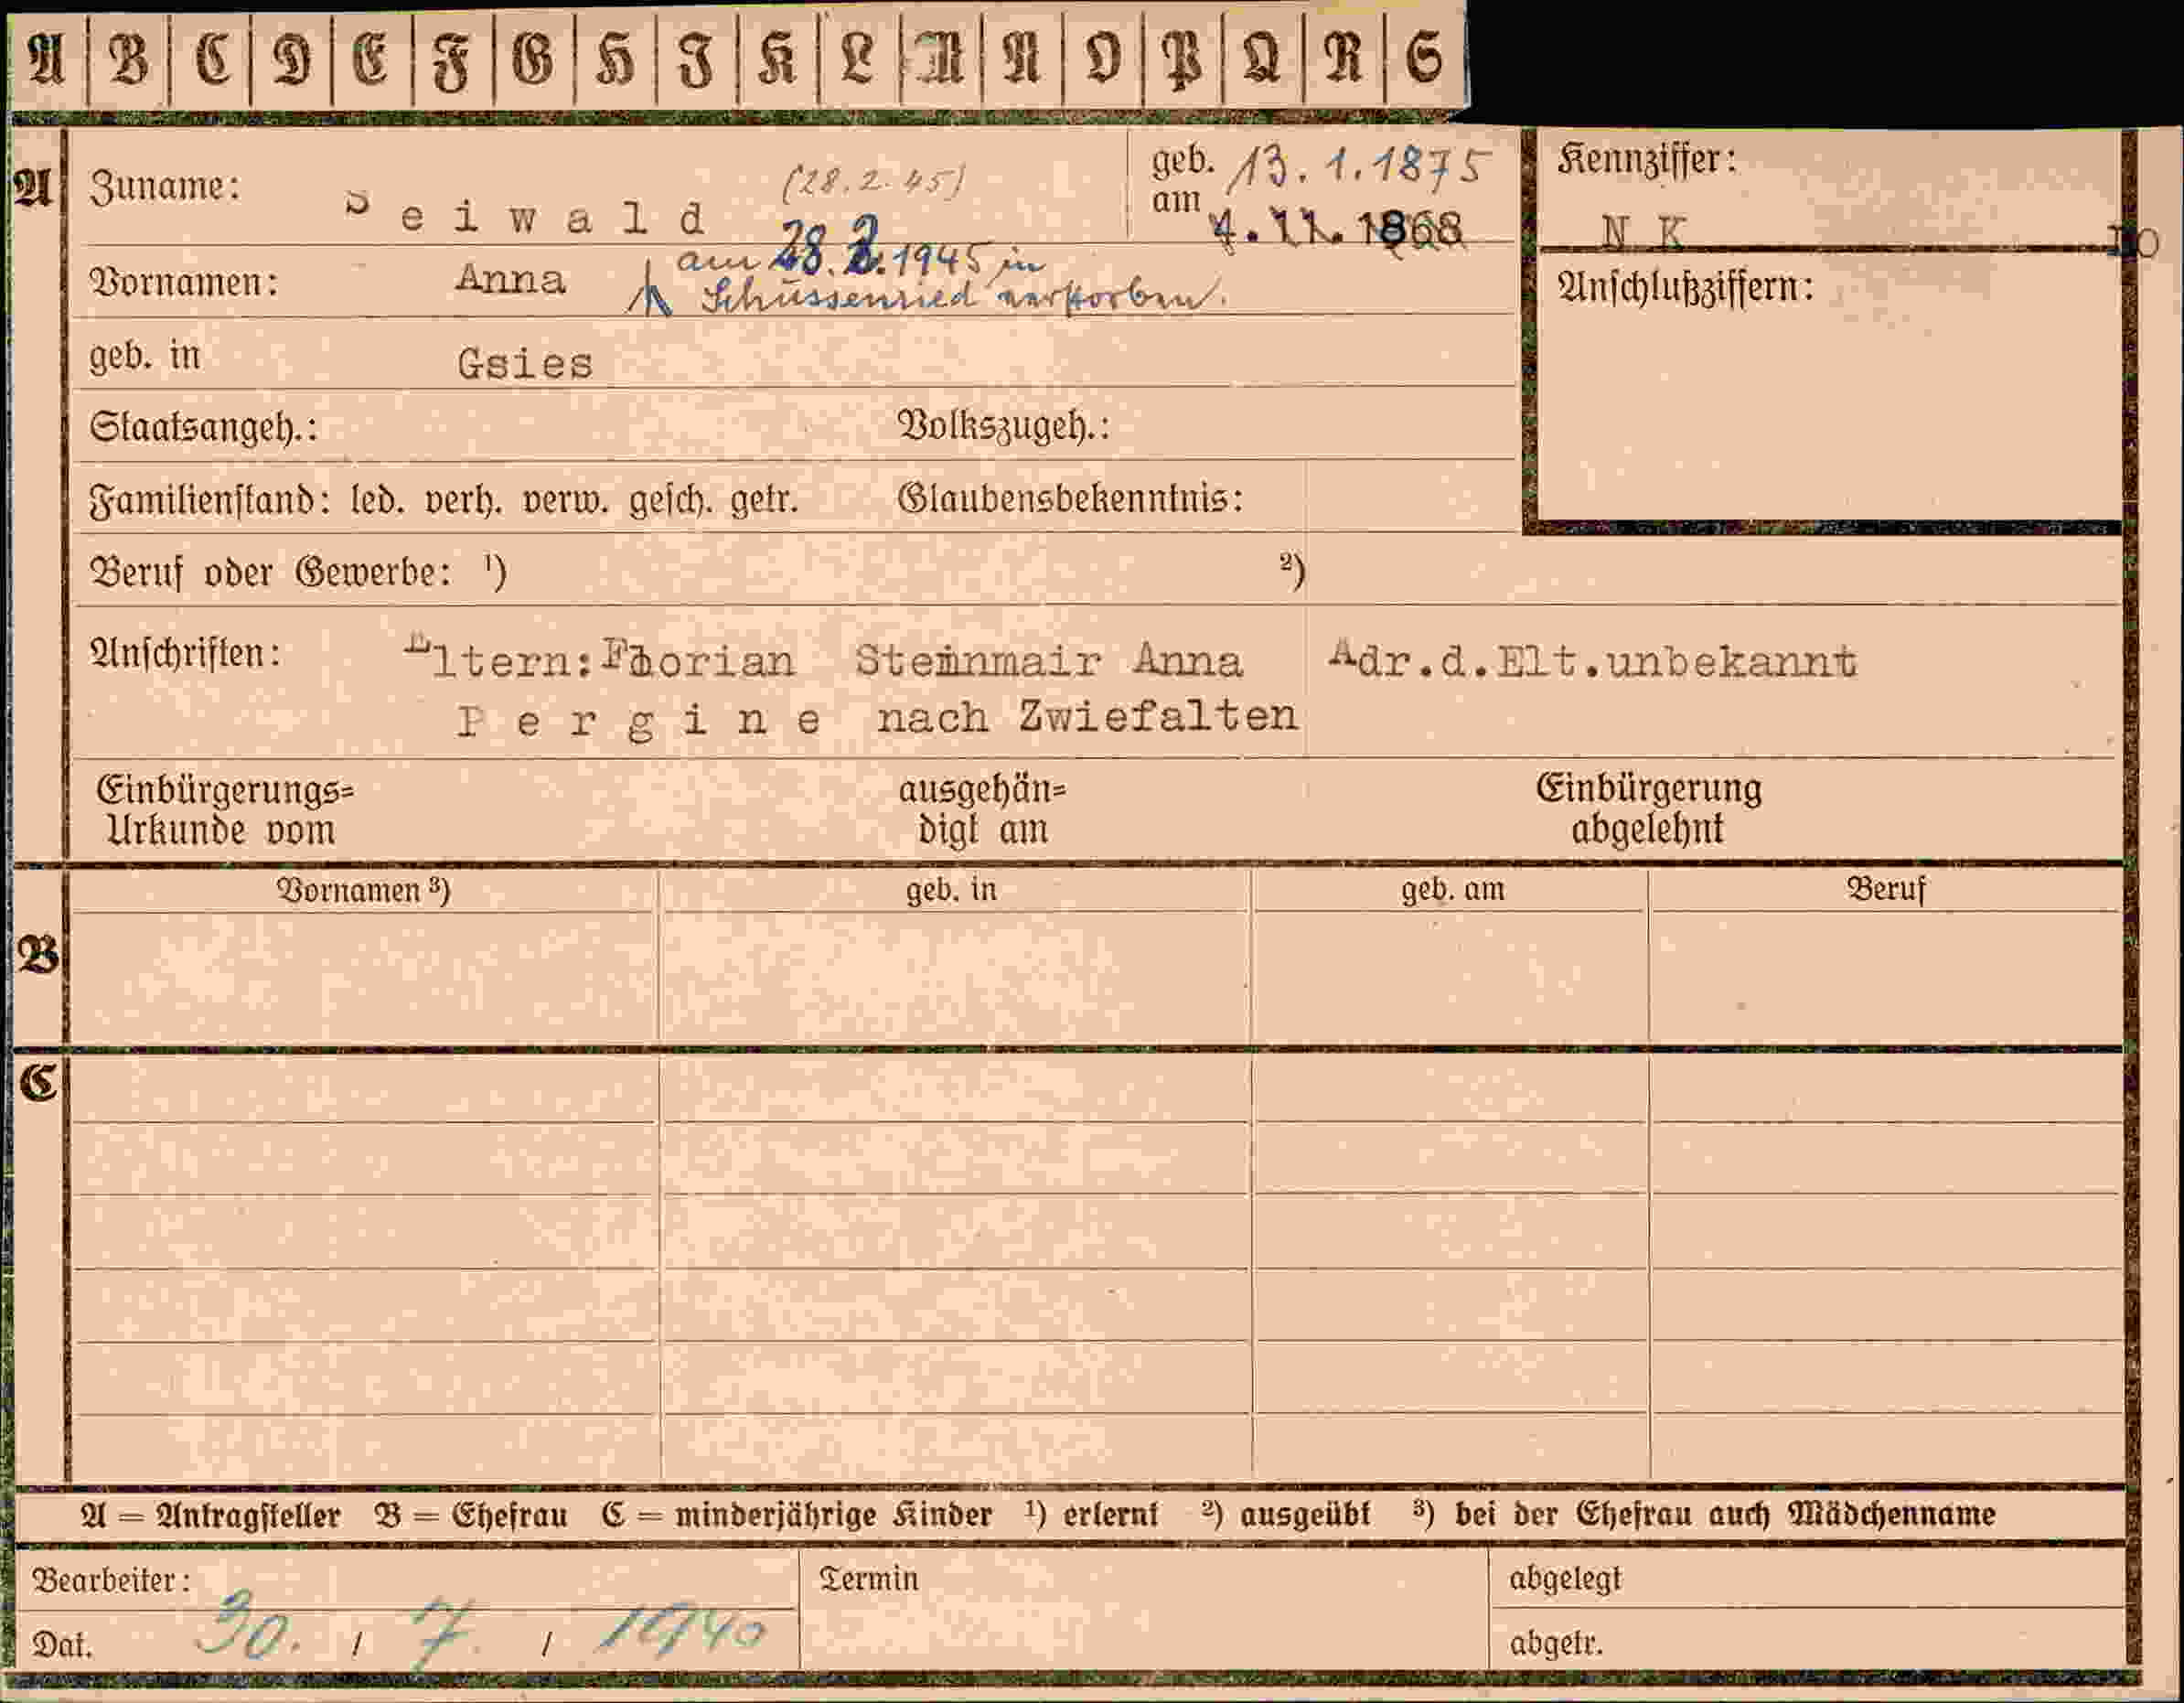 A B C D E F G H I K L M N O P Q R S
A Zuname: Seiwald (28.2.45) geb. am 13.1.1875 Kennziffer:
4.11.1868 N K
Vornamen: Anna am 28.2.1945 in Anschlußziffern:
Schussenried verstorben.
geb. in Gsies
Staatsangeh.: Volkszugeh.:
Familienstand: led. verh. verw. gesch. getr. Glaubensbekenntnis:
Beruf oder Gewerbe: ¹) ²)
Anschriften: Eltern: Florian Steinmair Anna Adr.d.Elt.unbekannt
Pergine nach Zwiefalten
Einbürgerungs= ausgehän= Einbürgerung
Urkunde vom digt am abgelehnt
B Vornamen ³) geb. in geb. am Beruf
C
A = Antragsteller B = Ehefrau C = minderjährige Kinder ¹) erlernt ²) ausgeübt ³) bei der Ehefrau auch Mädchenname
Bearbeiter: Termin abgelegt
Dat. 30. / 7. / 1940 abgetr.